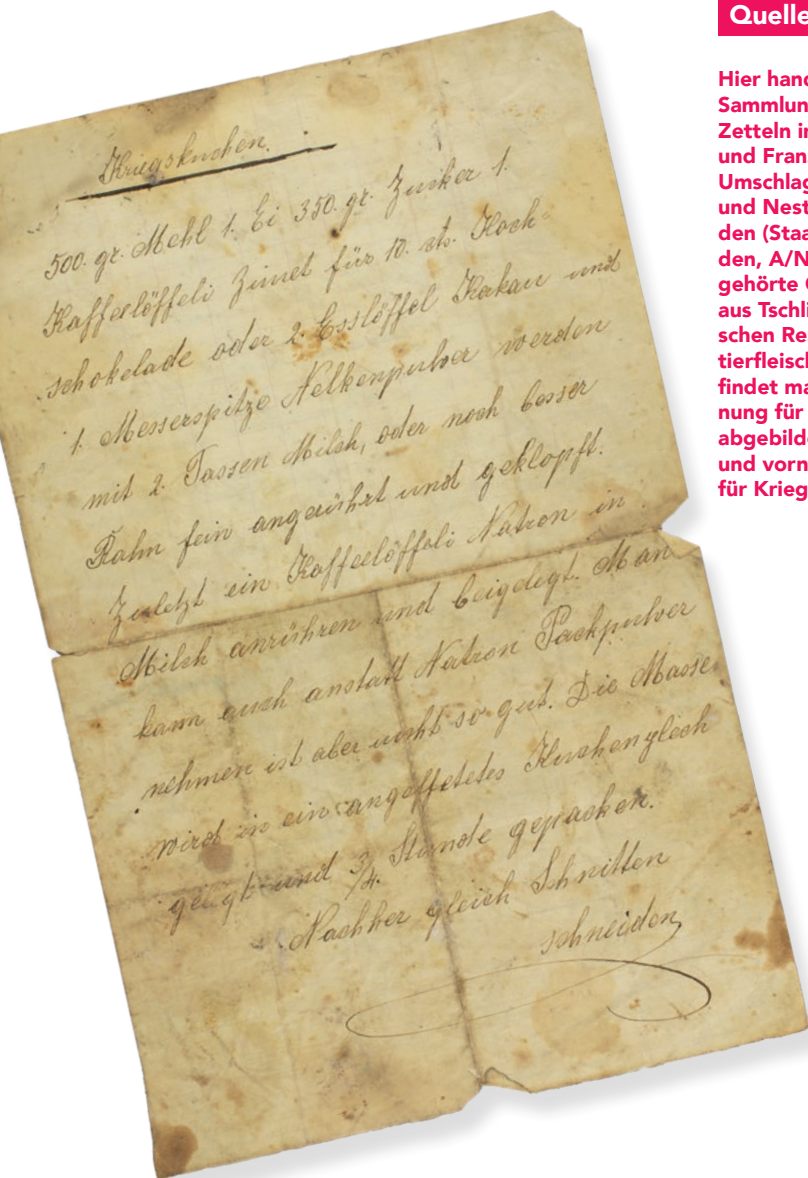 Kriegskuchen.
500. gr. Mehl 1. Ei 350. gr. Zucker 1.
Kaffeelöffeli Zimet für 10. cts. Koch-
schokelade oder 2. Esslöffel Kakau und
1. Messerspitze Nelkenpulver werden
mit 2. Tassen Milch, oder noch besser
Rahm fein angerührt und geklopft.
Zuletzt ein Kaffeelöffeli Natron in
Milch anrühren und beigelegt. Man
kann auch anstatt Natron Packpulver
nehmen ist aber nicht so gut. Die Masse
wird in ein angeffetetes Kuchenglech
und 3/4. Stunde gepacken.
Nachher gleich Schnitten
schneiden
Quelle
Hier hand
Sammlun
Zetteln i
und Fran
Umschlag
und Nest
den (Staa
den, A/N
gehörte
aus Tschli
schen Re
tierfleisch
findet ma
nung für
abgebild
und vorn
für Krieg